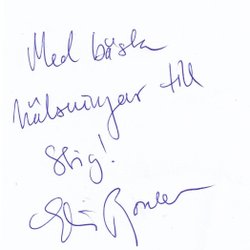 Med bästa
hälsningar till
Stig!